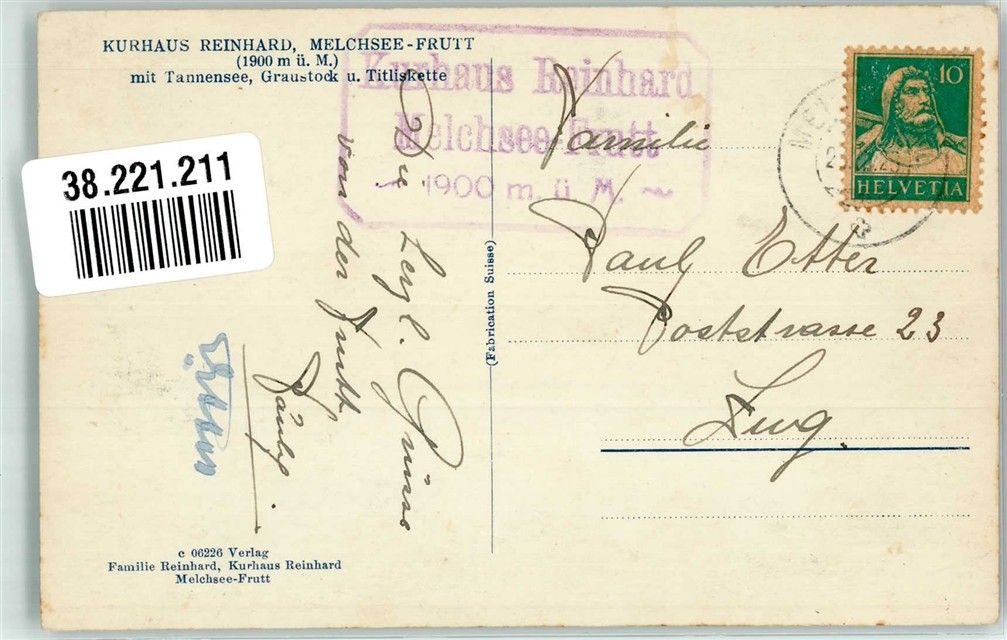 KURHAUS REINHARD, MELCHSEE-FRUTT
(1900 m ü. M.)
mit Tannensee, Graustock u. Titliskette
Kurhaus Reinhard
Melchsee-Frutt
1900 m. ü. M.
38.221.211
Die herzl. Grüsse
von der Frutt
Päuly
(Fabrication Suisse)
10
HELVETIA
Familie
Pauly Etter
Poststrasse 23
Zug.
c 06226 Verlag
Familie Reinhard, Kurhaus Reinhard
Melchsee-Frutt